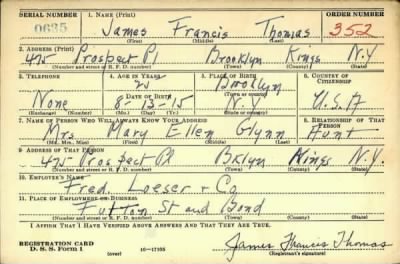 SERIAL NUMBER 1. NAME (Print) ORDER NUMBER
0635 James Francis Thomas 352
(First) (Middle) (Last)
2. ADDRESS (Print)
42 Prospect Pl Brooklyn Kings N.Y
(Number and street or R. F. D. number) (Town) (County) (State)
3. TELEPHONE 4. AGE IN YEARS 5. PLACE OF BIRTH 6. COUNTRY OF CITIZENSHIP
Brooklyn
(Town or county)
DATE OF BIRTH
None 8-13-15 N.Y U.S.A
(Exchange) (Number) (Mo.) (Day) (Yr.) (State or country)
7. NAME OF PERSON WHO WILL ALWAYS KNOW YOUR ADDRESS 8. RELATIONSHIP OF THAT PERSON
Mrs Mary Ellen Glynn Aunt
(Mr., Mrs., Miss) (First) (Middle) (Last)
9. ADDRESS OF THAT PERSON
42 Prospect Pl Bklyn Kings N.Y.
(Number and street or R. F. D. number) (Town) (County) (State)
10. EMPLOYER'S NAME
Fred. Loeser + Co
11. PLACE OF EMPLOYMENT OR BUSINESS
Fulton St and Bond
(Number and street or R. F. D. number) (Town) (County) (State)
I AFFIRM THAT I HAVE VERIFIED ABOVE ANSWERS AND THAT THEY ARE TRUE.
REGISTRATION CARD
D. S. S. Form 1 (over) 16-17105 James Francis Thomas
(Registrant's signature)